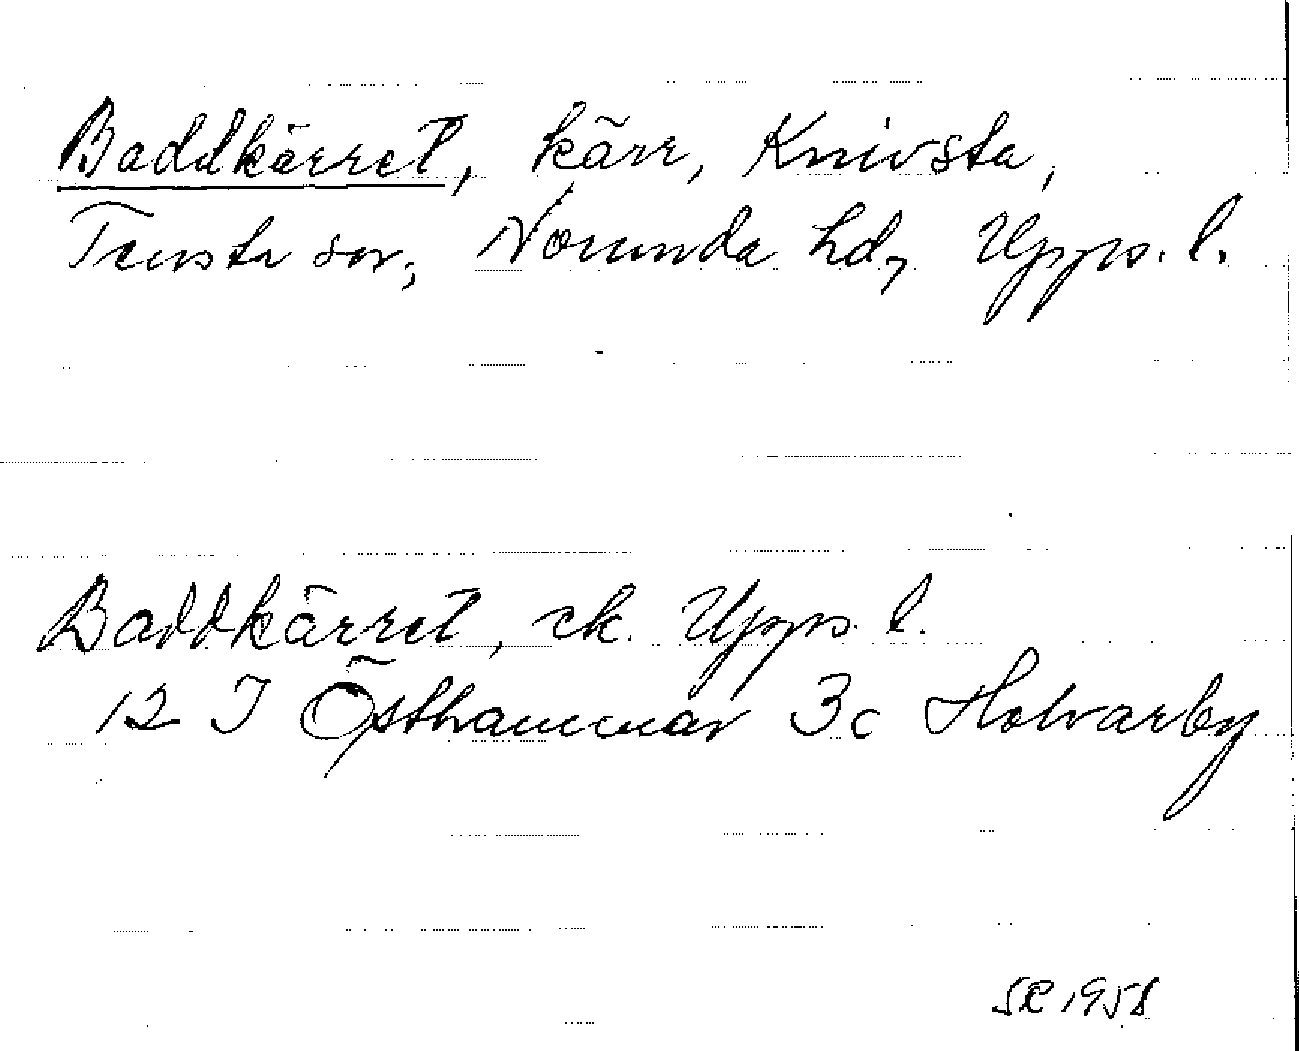 Baddkärret, kärr, Knivsta,
Tensta sn, Norunda hd, Upps. l.
Baddkärret, ek. Upps. l.
12 I Östhammar 3c Holvarby
SR 1958